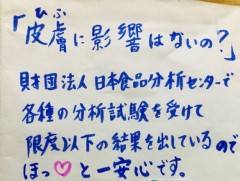 ひふ
「皮膚に影響はないの?」
財団法人 日本食品分析センターで
各種の分析試験を受けて
限度以下の結果を出しているので
ほっ♡と一安心です。